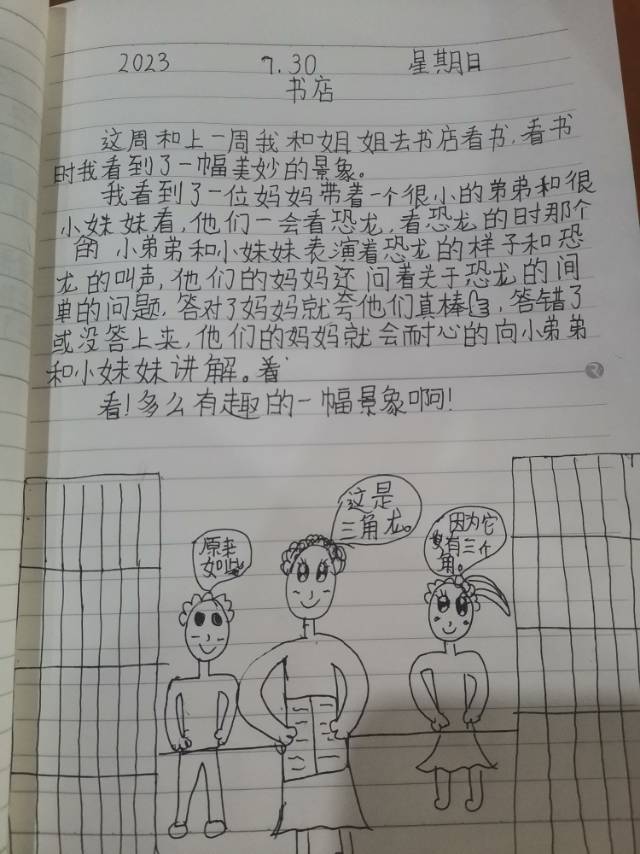 2023 7.30 星期日
书店
这周和上一周我和姐姐去书店看书,看书
时我看到了一幅美妙的景象。
我看到了一位妈妈带着一个很小的弟弟和很
小妹妹看,他们一会看恐龙,看恐龙的时那个
的 小弟弟和小妹妹表演着恐龙的样子和恐
龙的叫声,他们的妈妈还问着关于恐龙的间
单的问题,答对了妈妈就夸他们真棒,答错了
或没答上来,他们的妈妈就会耐心的向小弟弟
和小妹妹讲解。着
看!多么有趣的一幅景象啊!
这是
三角龙。
因为它
有三个
角。
原来
如此